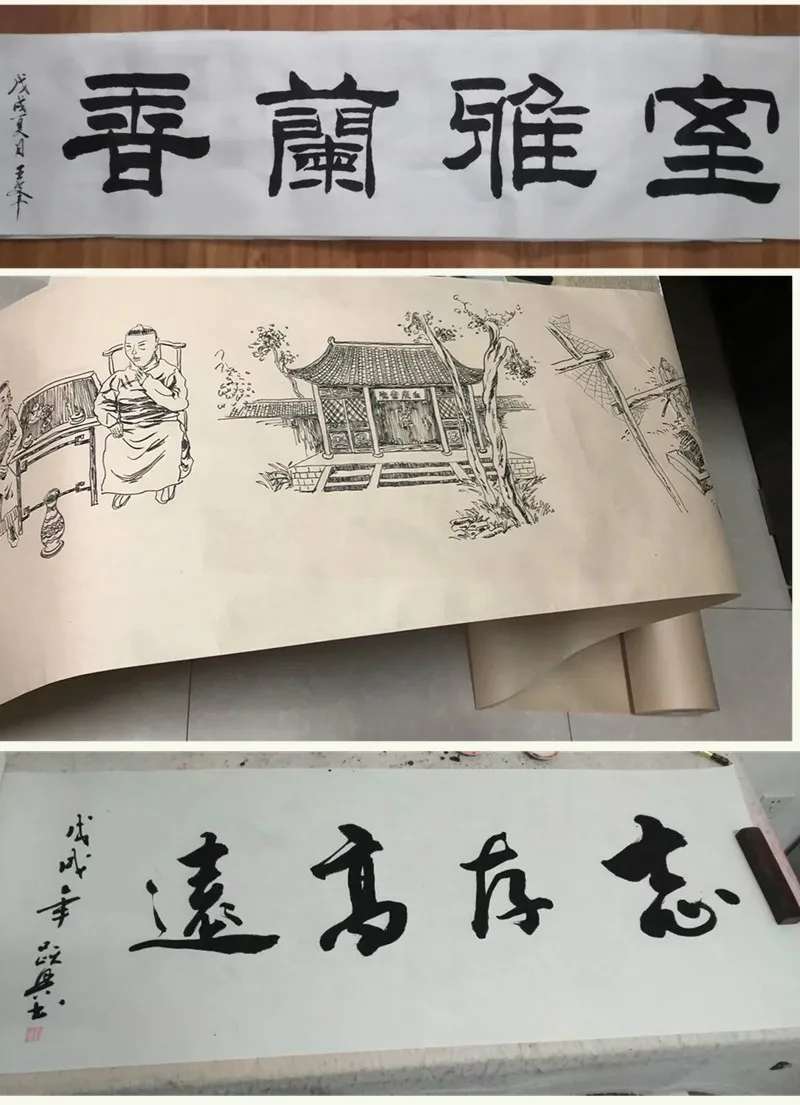 室雅蘭香
戊戌夏日王
志存高遠
戊戌年